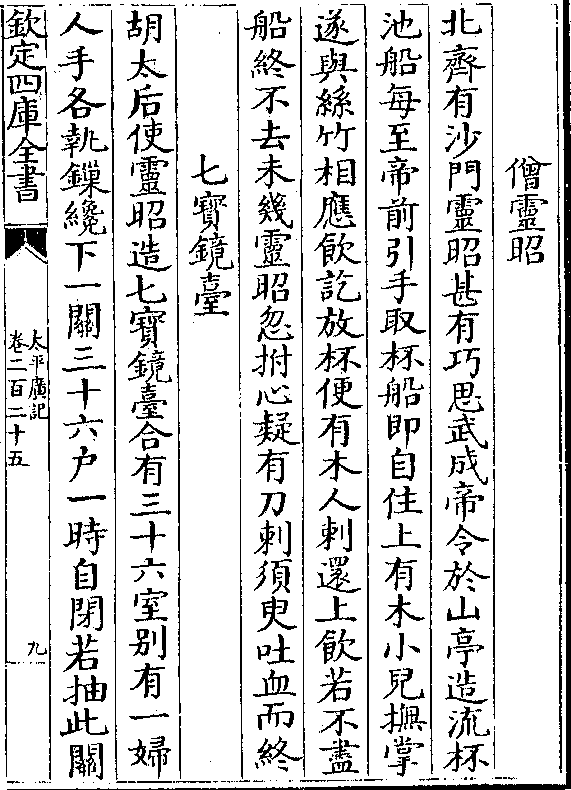 僧靈昭
北齊有沙門靈昭甚有巧思武成帝令於山亭造流杯
池船每至帝前引手取杯船即自住上有木小兒撫掌
遂與絲竹相應飲訖放杯便有木人刺還上飲若不盡
船終不去未幾靈昭忽拊心疑有刀刺須臾吐血而終
七寶鏡臺
胡太后使靈昭造七寶鏡臺合有三十六室别有一婦
人手各執鏁纔下一關三十六户一時自閉若抽此關
欽定四庫全書
太平廣記
卷二百二十五
九